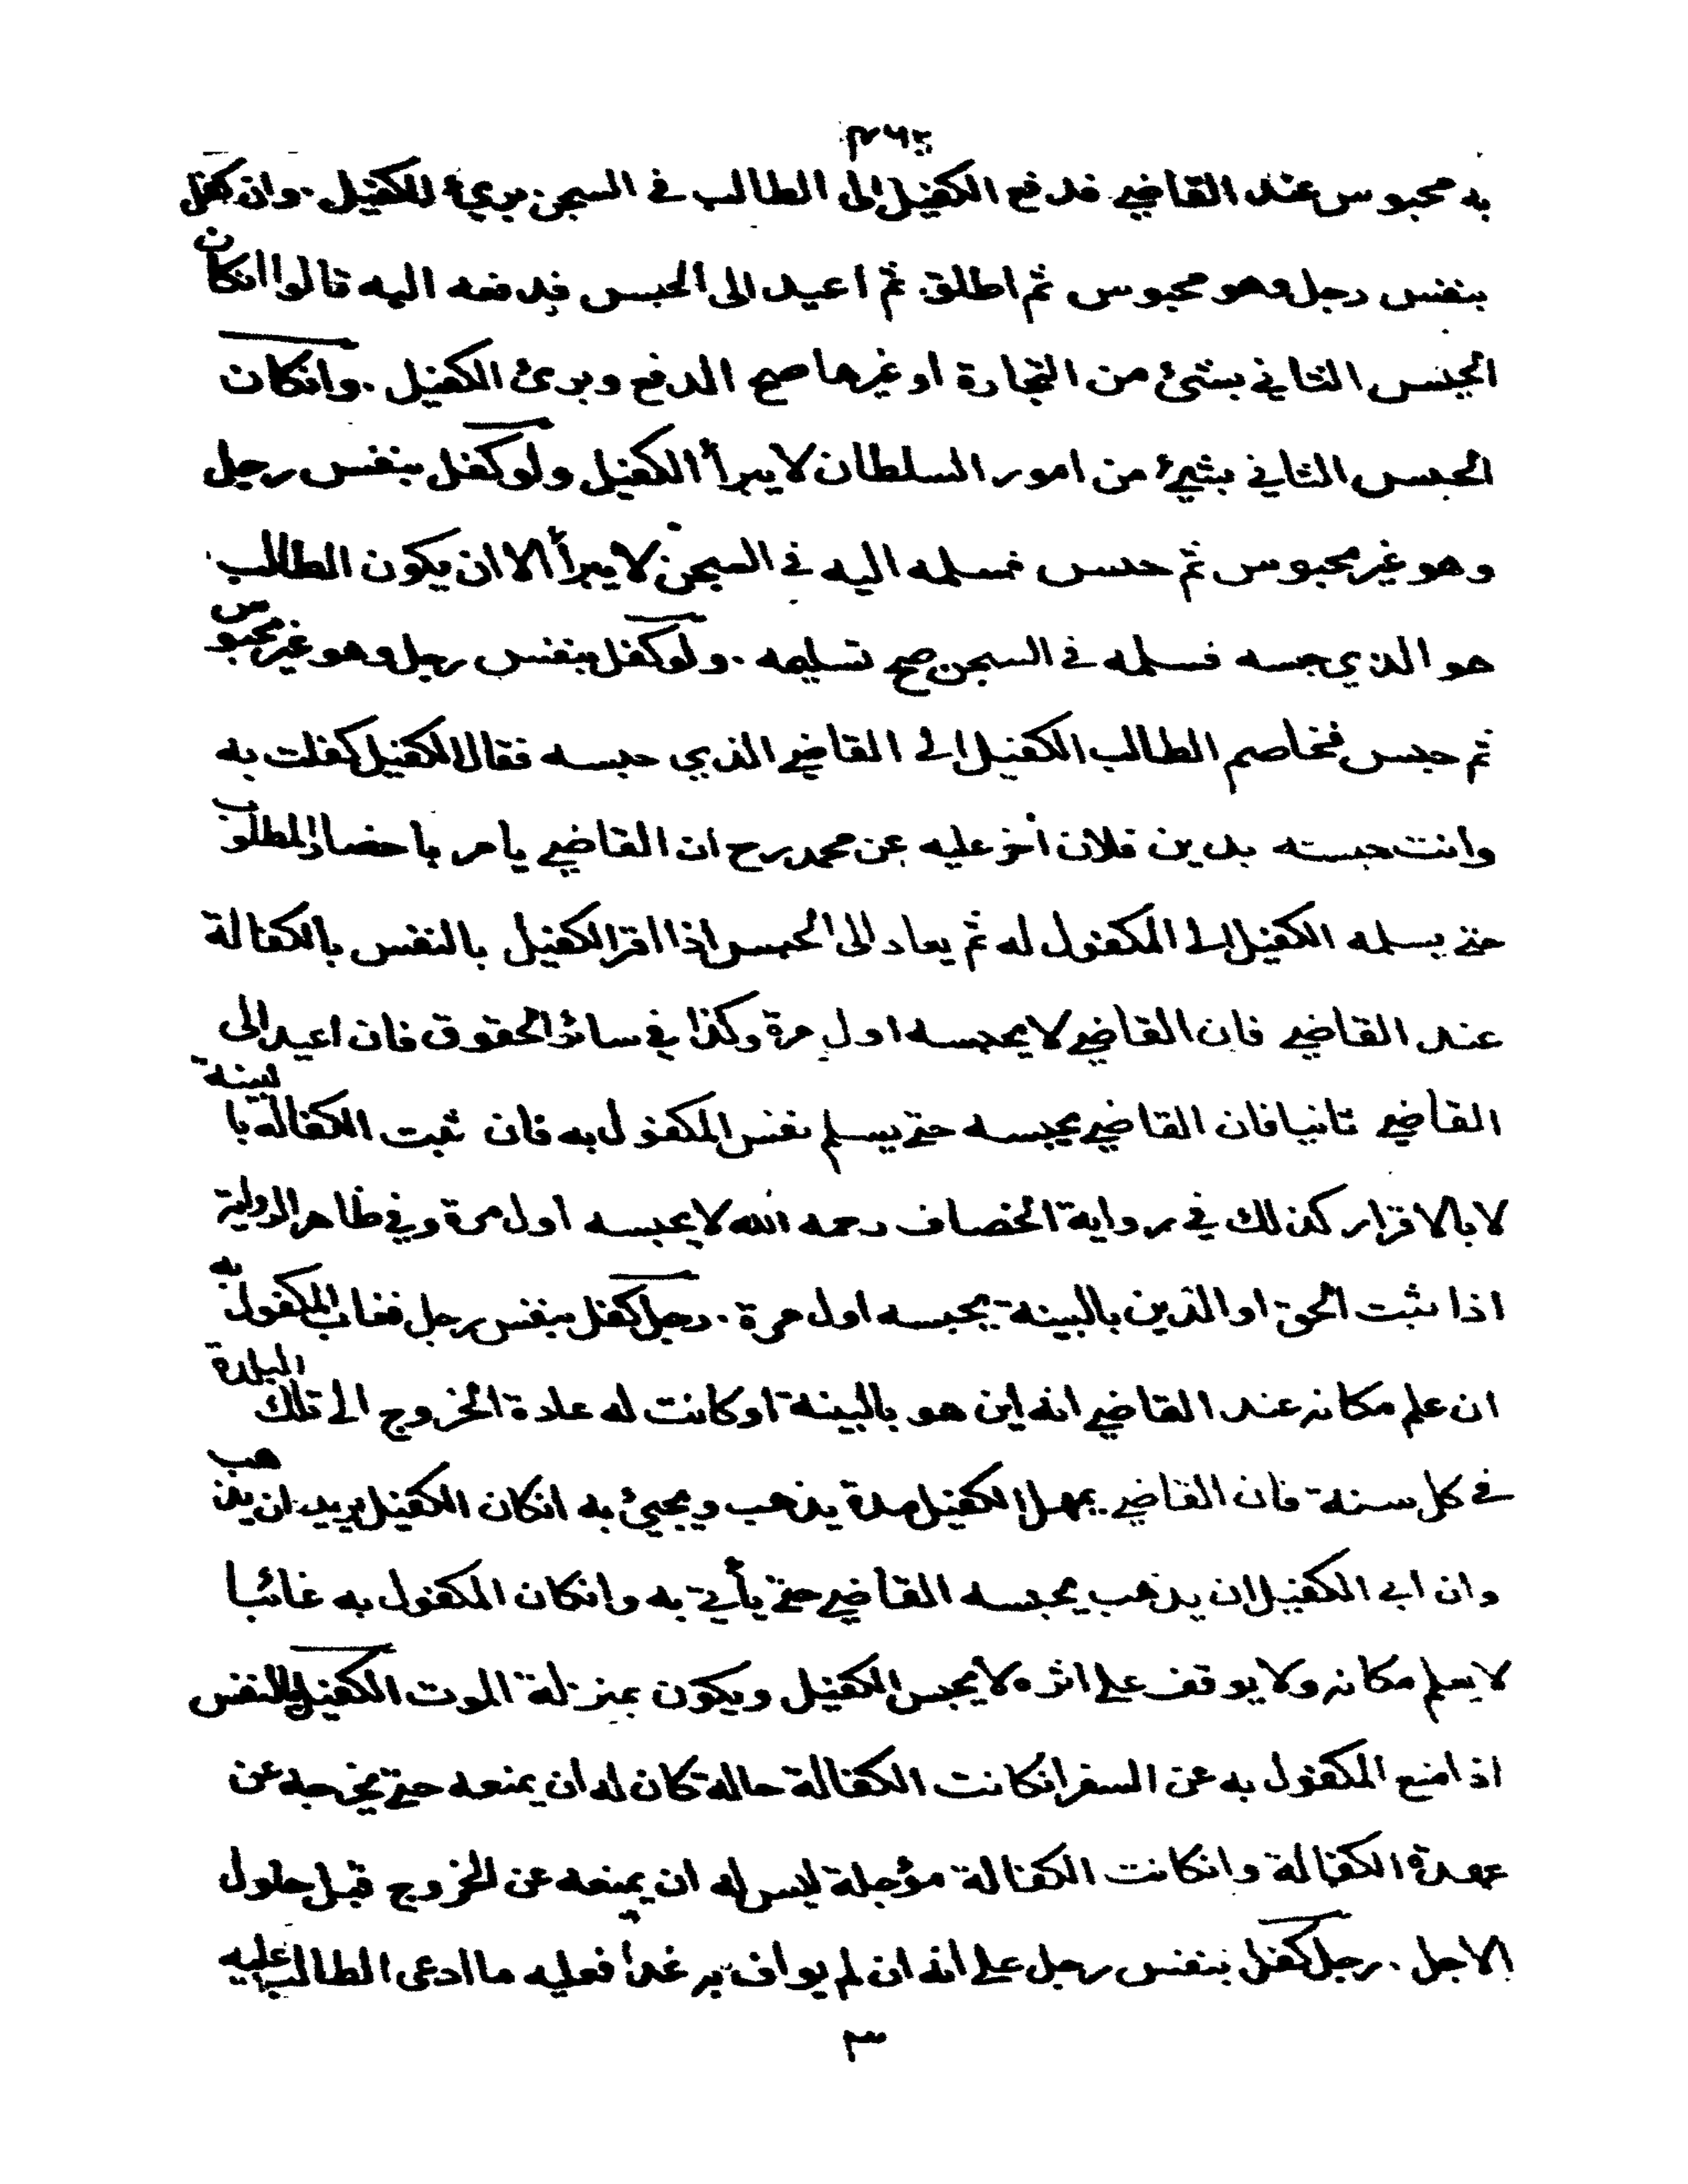 به محبوس عند القاضي فدفع الكفيل الى الطالب في السجن بريء الكفيل . وان كفل
بنفس رجل وهو محبوس ثم اطلق ثم اعيد الى الحبس فدفعه اليه قالوا انكان
الحبس الثاني بشئ من التجارة او غيرها صح الدفع وبرئ الكفيل . وانكان
الحبس الثاني بشيء من امور السلطان لا يبرأ الكفيل ولو كفل بنفس رجل
وهو غير محبوس ثم حبس فسلمه اليه في السجن لا يبرأ الا ان يكون الطالب
هو الذي حبسه فسلمه في السجن صح تسليمه . ولو كفل بنفس رجل وهو غير محبوس
ثم حبس فخاصم الطالب الكفيل الى القاضي الذي حبسه فقال الكفيل كفلت به
وانت حبسته بدين فلان أخر عليه عن محمد رح ان القاضي يامر باحضار المطلوب
حتى يسلمه الكفيل الى المكفول له ثم يعاد الى الحبس اذا اقر الكفيل بالنفس بالكفالة
عند القاضي فان القاضي لا يحبسه اول مرة وكذا في سائر الحقوق فان اعيد الى
القاضي ثانيا فان القاضي يحبسه حتى يسلم نفس المكفول به فان ثبت الكفالة بالبينة
لا بالاقرار كذلك في رواية الخصاف رحمه الله لا يحبسه اول مرة وفي ظاهر الرواية
اذا ثبت الحق او الدين بالبينة يحبسه اول مرة . رجل كفل بنفس رجل فغاب المكفول به
ان علم مكانه عند القاضي انه اين هو بالبينة او كانت له عادة الخروج الى تلك البلدة
في كل سنة فان القاضي يمهل الكفيل مدة يذهب ويجيئ به انكان الكفيل يريد ان يذهب
وان ابى الكفيل ان يذهب يحبسه القاضي حتى يأتي به وانكان المكفول به غائبا
لا يعلم مكانه ولا يوقف على اثره لا يحبس الكفيل ويكون بمنزلة الموت الكفيل بالنفس
اذا منع المكفول به عن السفر انكانت الكفالة حالة كان له ان يمنعه حتى يخرجه عن
عهدة الكفالة وانكانت الكفالة مؤجلة ليس له ان يمنعه عن الخروج قبل حلول
الاجل . رجل كفل بنفس رجل على انه ان لم يواف به غدا فعليه ما ادعى الطالب عليه